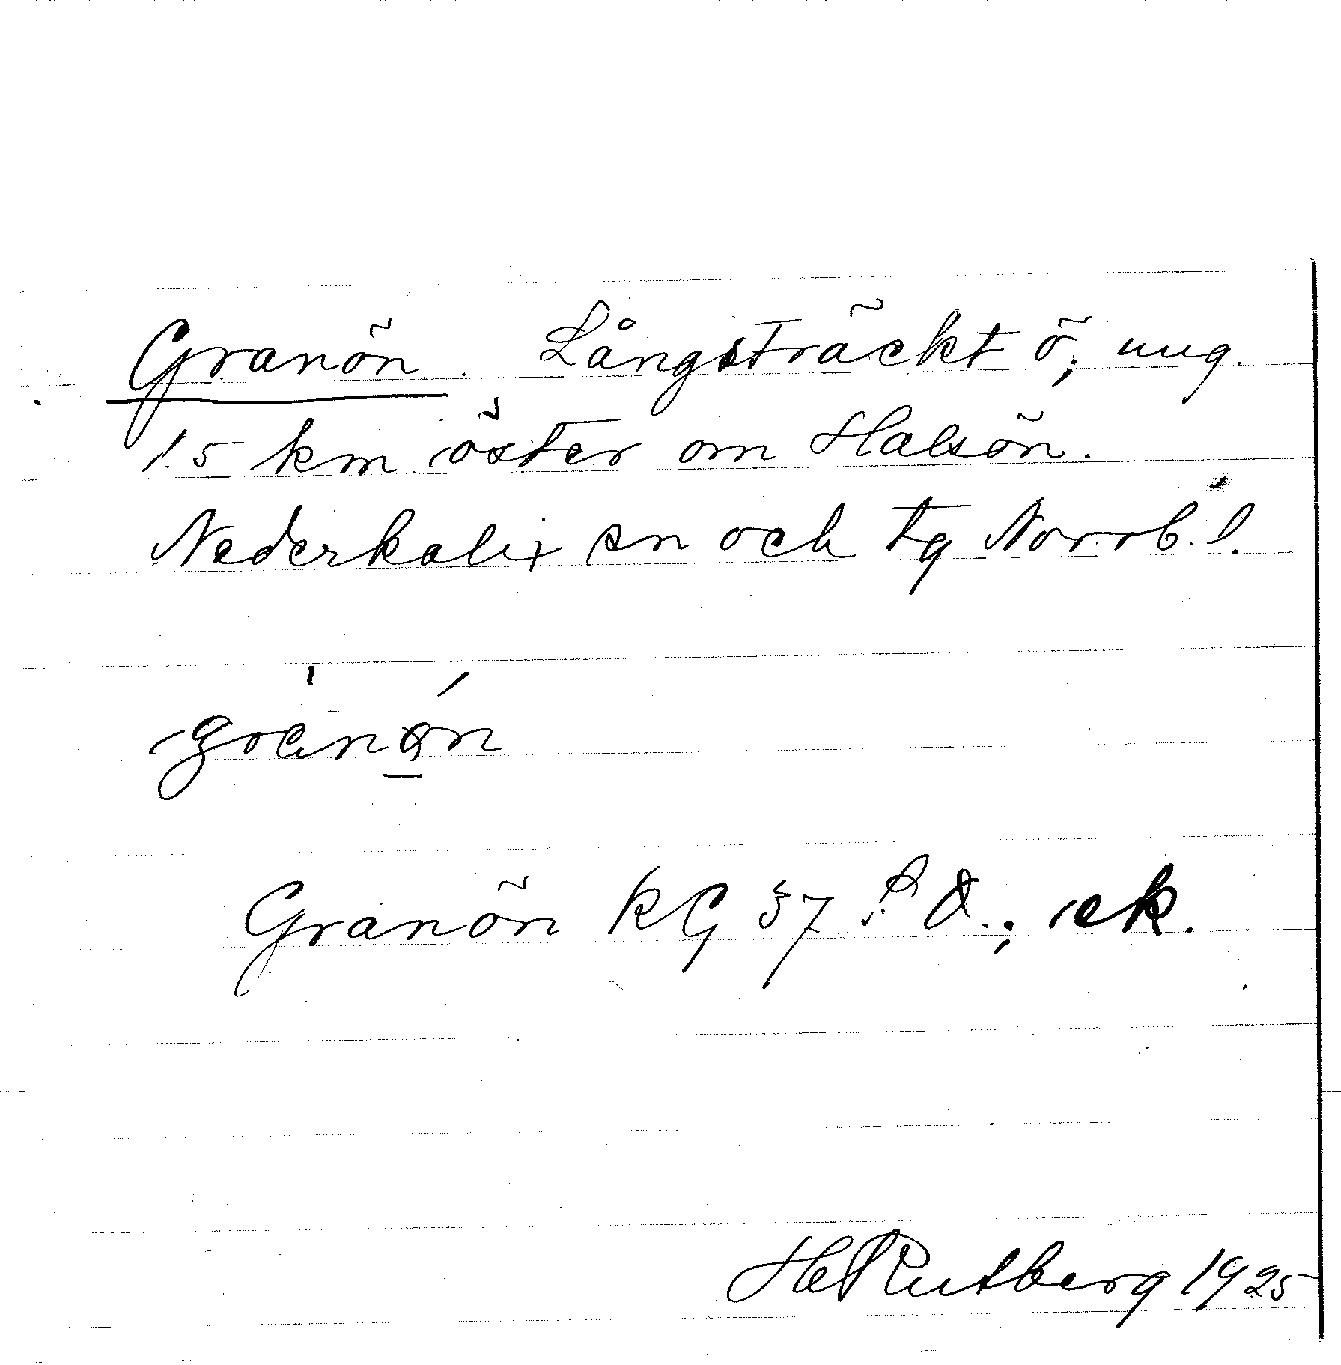 Granön. Långsträckt ö, ung.
15 km öster om Halsön.
Nederkalix sn och tg Norrb. l.
Granön KG 37 S. O.; ek.
H Rutberg 1925